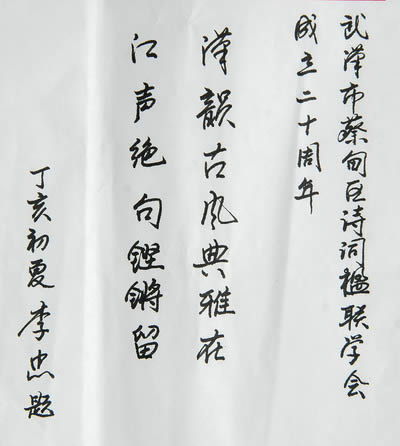 武汉市蔡甸区诗词楹联学会
成立二十周年
汉韵古风典雅在
江声绝句铿锵留
丁亥初夏 李忠题